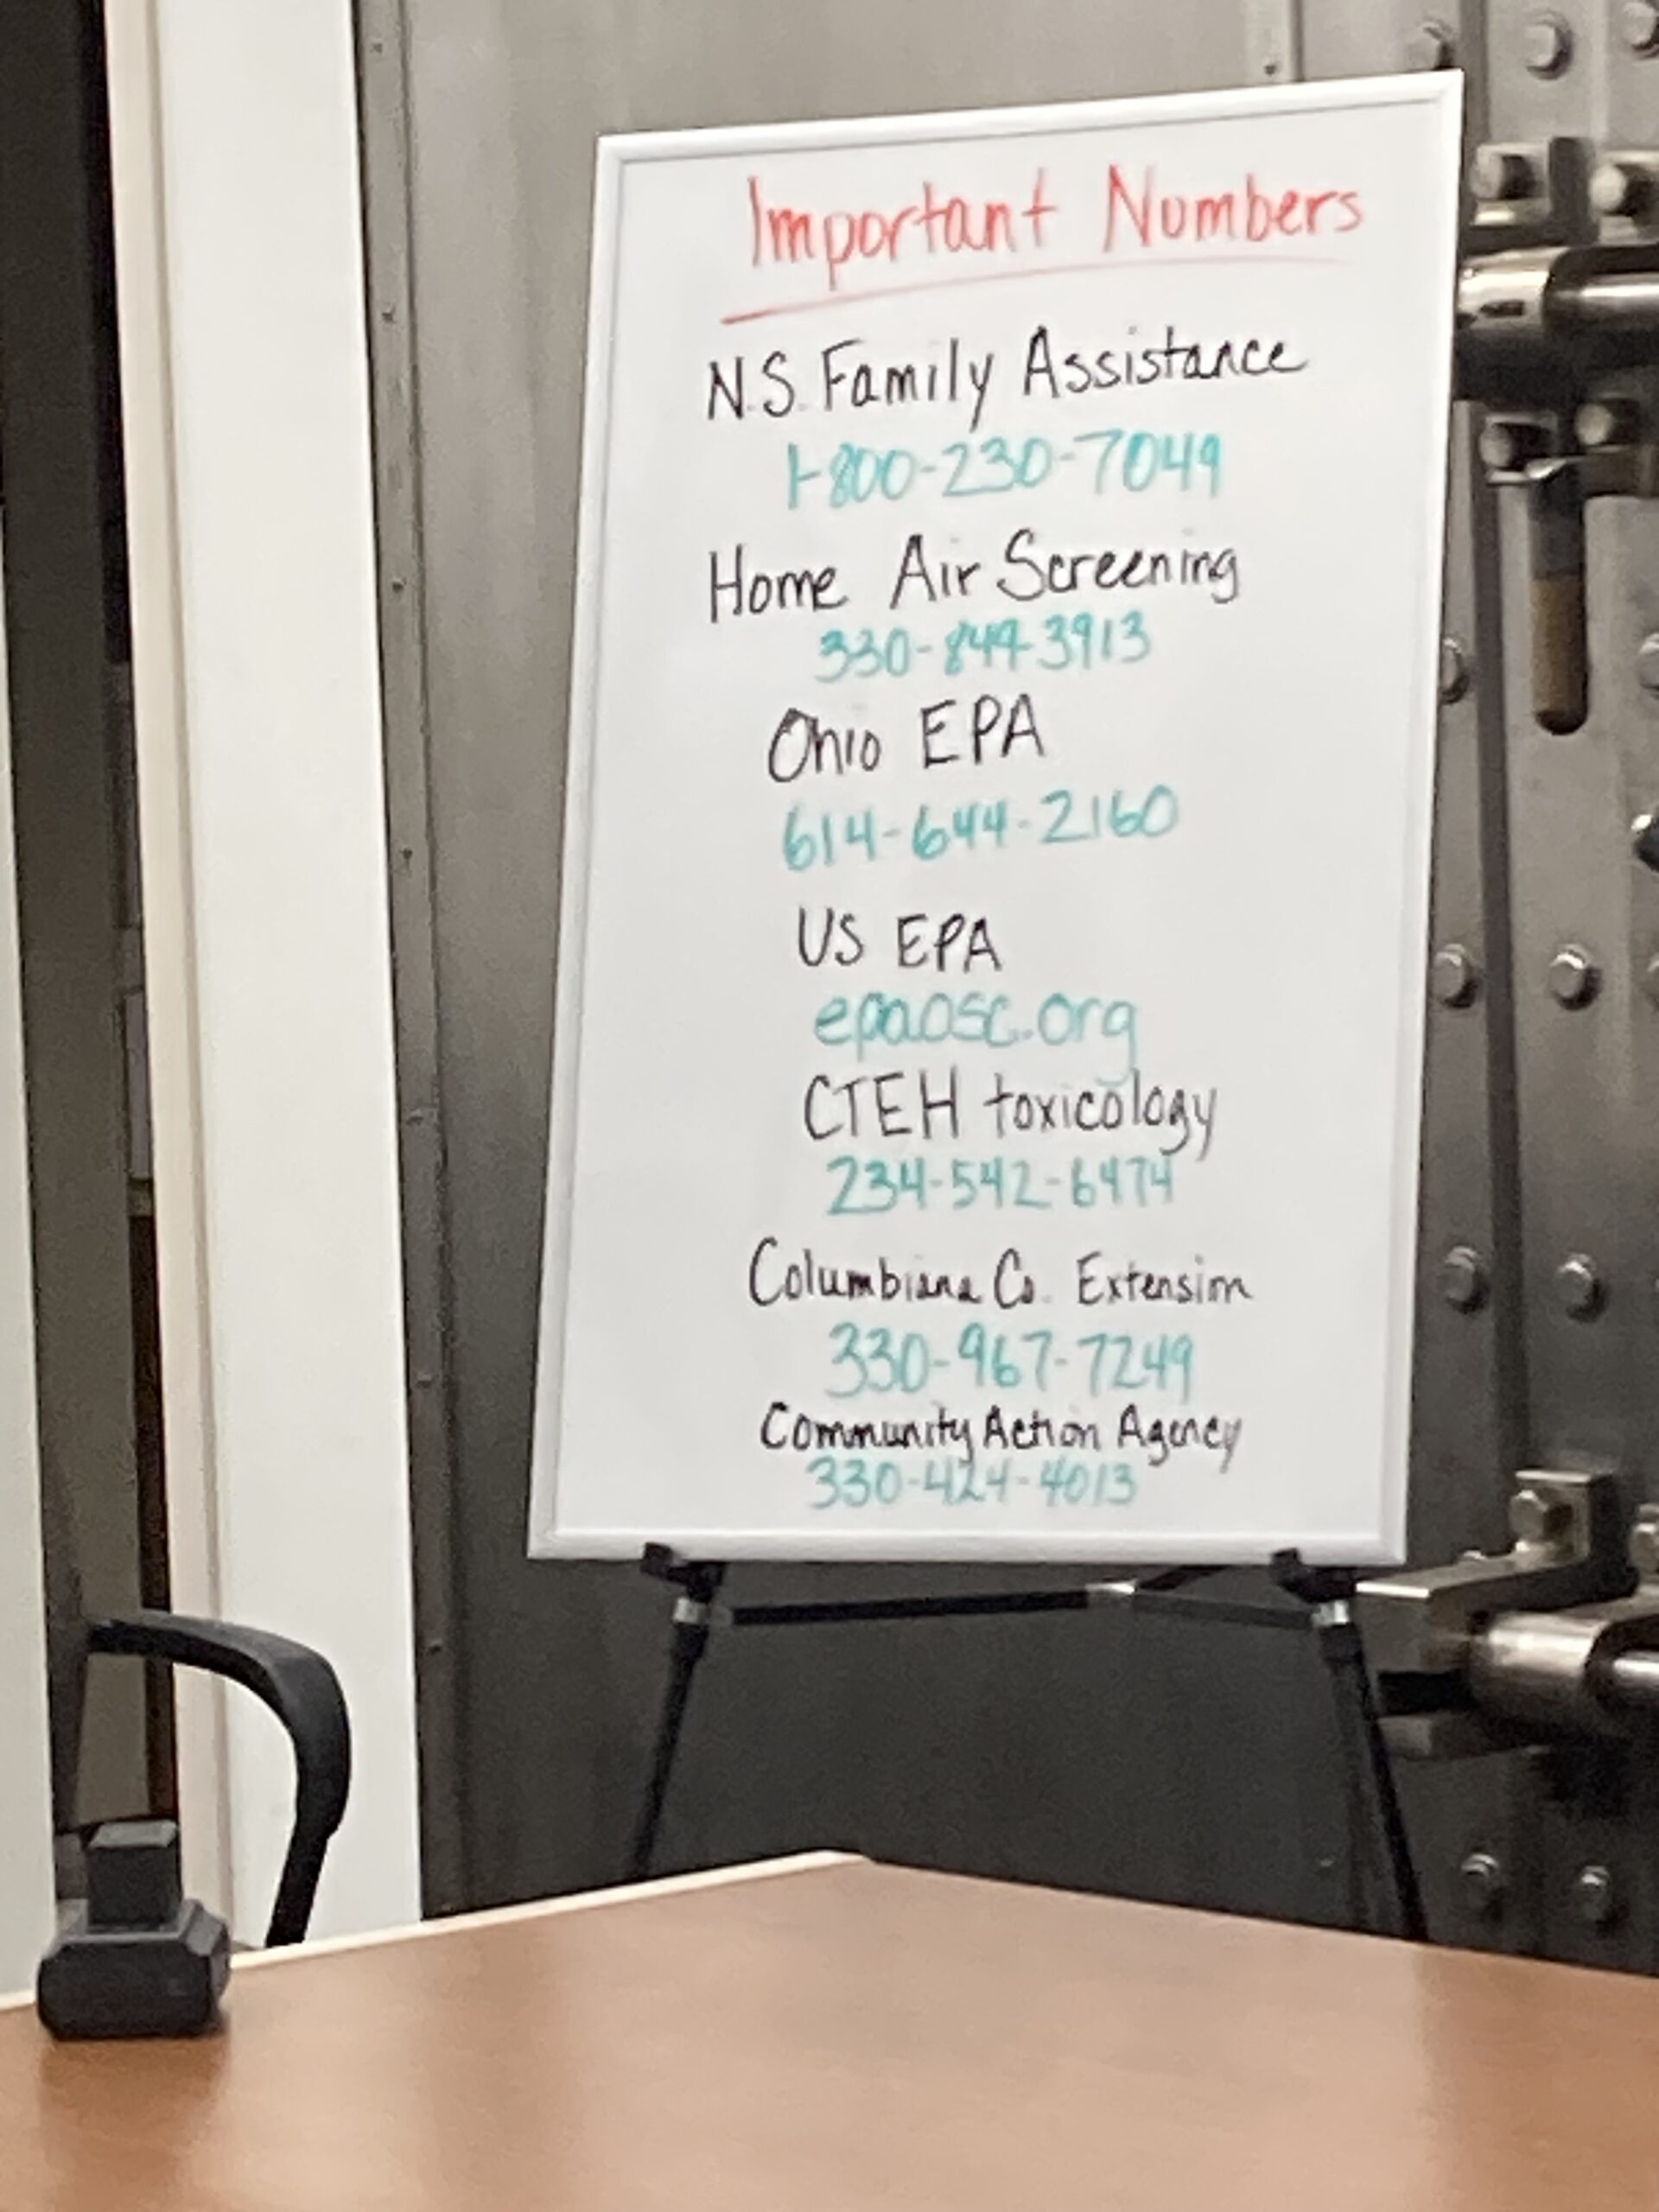 Important Numbers
N.S. Family Assistance
1-800-230-7049
Home Air Screening
330-849-3913
Ohio EPA
614-644-2160
US EPA
epaosc.org
CTEH toxicology
234-542-6474
Columbiana Co. Extension
330-967-7249
Community Action Agency
330-424-4013